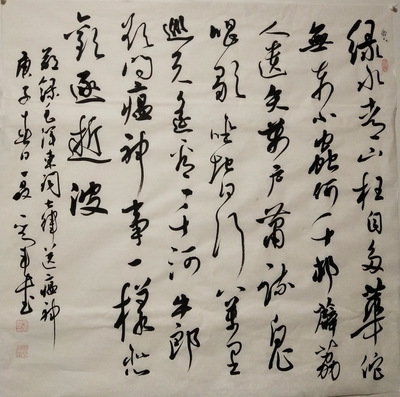 绿水青山枉自多華佗
無奈小蟲何千邨薜荔
人遗矢萬户萧疏鬼
唱歌坐地日行八萬里
巡天遥看一千河牛郎
欲问瘟神事一樣悲
歡逐逝波
毛泽东词七律送瘟神
庚子春日夏